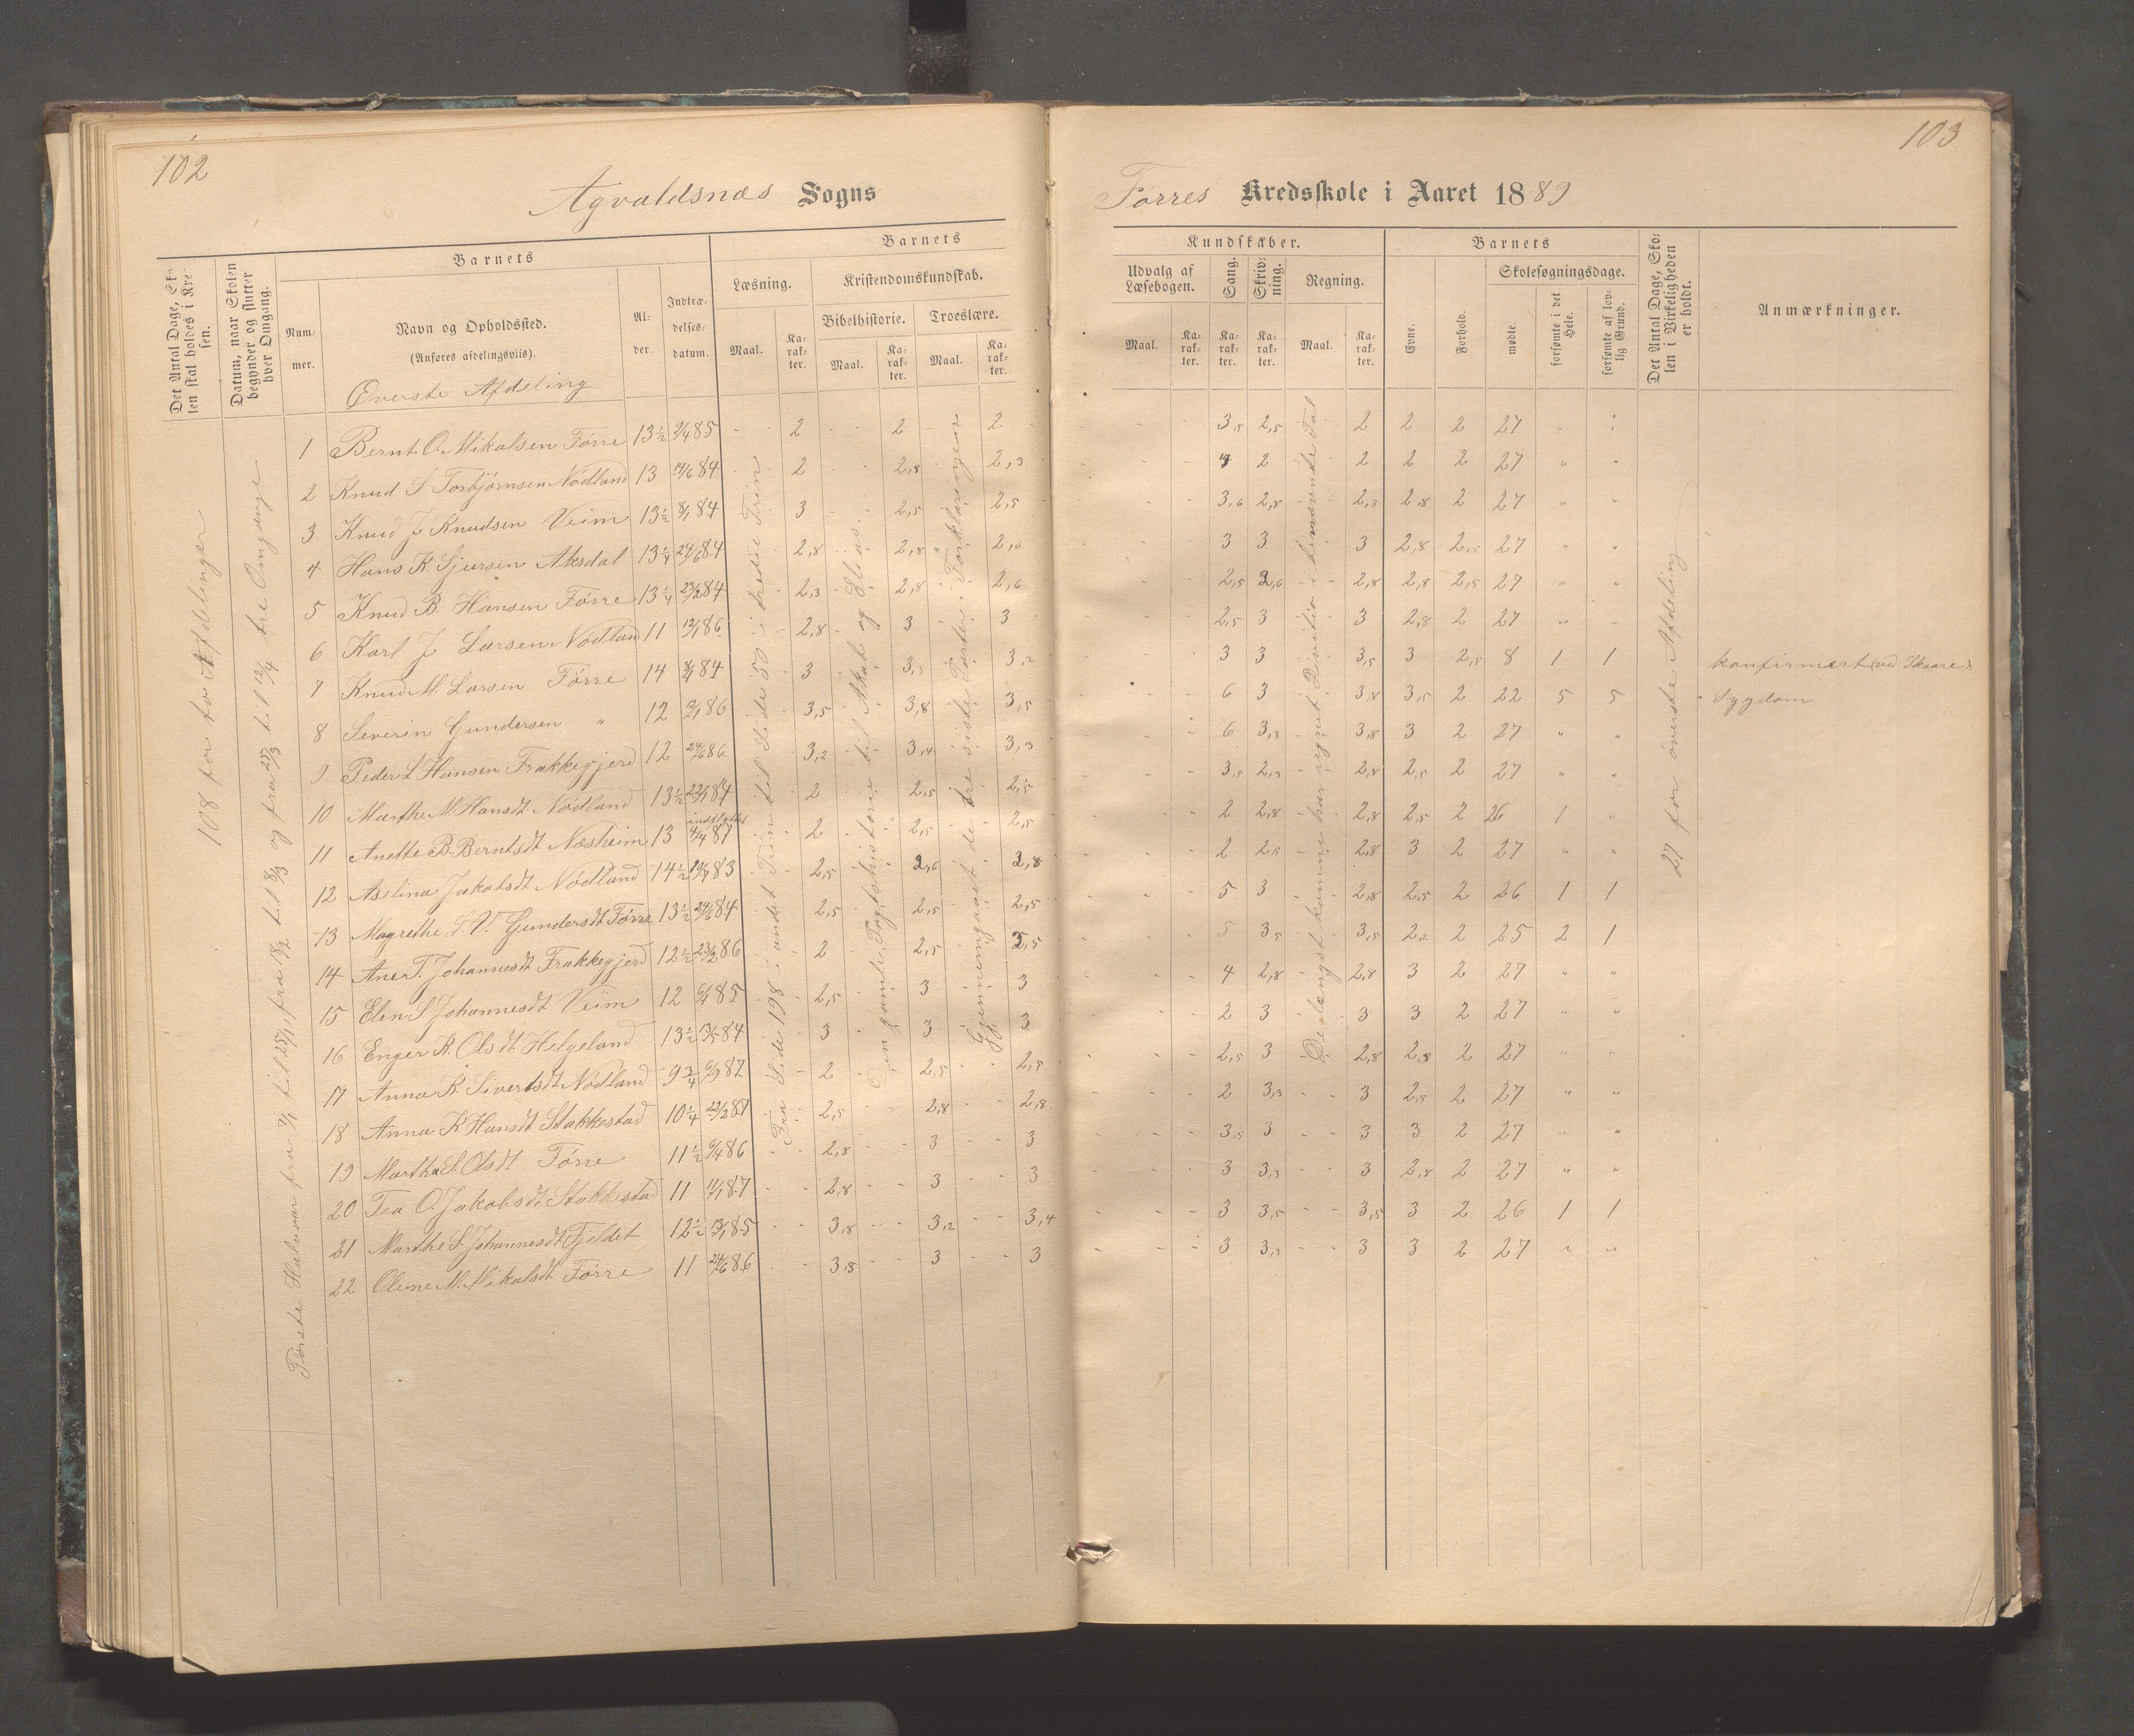 102
Agvaldsnæs Sogns
Det Antal Dage, Skolen skal holdes i Kredsen.
Datum, naar Skolen begynder og slutter hver Omgang.
Barnets
Nummer.
Navn og Opholdssted.
(Anføres afdelingsviis).
Alder.
Indtrædelsesdatum.
Barnets
Læsning.
Maal.
Karakter.
Kristendomskundskab.
Bibelhistorie.
Maal.
Karakter.
Troeslære.
Maal.
Karakter.
Øverste Afdeling
108 for to Afdelinger
Første Halvaar fra 7/1 til 25/1, fra 18/2 til 8/3 og fra 27/3 til 12/4 tre Omgange
Fra Side 198 i andet Trin til Side 50 i tredie Trin
Den gamle Pagtshistorie til Akab og Elias.
Gjennemgaaet de tre sidste Parter i Forklaringen
1 Bernt O. Mikalsen Førre 13½ 2/4 85 - - 2 - - 2 - - 2
2 Knud S Torbjørnsen Nødland 13 14/6 84 - - 2 - - 2,8 - - 2,3
3 Knud J Knudsen Veim 13½ 8/1 84 3 2,5 2,5
4 Hans K. Sjursen Aksdal 13¼ 24/6 84 2,8 2,8 2,6
5 Knud B. Hansen Førre 13¼ 23/2 84 2,3 2,8 2,6
6 Karl J Larsen Nødland 11 12/1 86 2,8 3 3
7 Knud M. Larsen Førre 14 8/1 84 3 3,2 3,2
8 Severin Gundersen " 12 12/1 86 3,5 3,8 3,5
9 Peder L Hansen Frakkegjerd 12 24/6 86 3,2 3,4 3,3
10 Marthe M. Hansdt. Nødland 13½ 23/1 84 2 2,5 2,5
11 Anette B. Berntsdt Næsheim 13 indflyttet 4/4 87 2 2,5 2,5
12 Aselina Jakobsdt Nødland 14½ 19/4 83 2,5 2,6 2,8
13 Magrethe S. V. Gundersdt Førre 13½ 24/6 84 2,5 2,5 2,5
14 Ane T. Johannesdt Frakkegjerd 12½ 23/2 86 2 2,5 2,5
15 Elen S Johannesdt Veim 12 6/1 85 2,5 3 3
16 Enger K. Olsdt Helgeland 13½ 13/5 84 3 3 3
17 Anna K. Sivertsdt Nødland 9¾ 6/9 87 2 2,5 2,5
18 Anna K Hansdt Stakkestad 10¼ 22/2 87 2,5 2,8 2,8
19 Martha S. Olsdt Førre 11½ 6/4 86 2,8 3 3
20 Tea O. Jakobsdt Stakkestad 11 11/1 87 2,8 3 3
21 Marthe S. Johannesdt Fjeldet 12½ 13/1 85 3,8 3,2 3,4
22 Oline M. Mikalsdt Førre 11 24/6 86 3,8 3 3
103
Førres Kredsskole i Aaret 1889
Kundskaber.
Udvalg af Læsebogen.
Maal.
Karakter.
Sang.
Karakter.
Skrivning.
Karakter.
Regning.
Maal.
Karakter.
Barnets
Evne.
Forhold.
Skolesøgningsdage.
mødte.
forsømte i det Hele.
forsømte af lovlig Grund.
Det Antal Dage, Skolen i Virkeligheden er holdt.
Anmærkninger.
De længst komne har regnet Division i benævnte Tal
27 for øverste Afdeling
3,5 2,5 2 2 2 27 " "
4 2 2 2 2 27 " "
3,6 2,8 2,3 2,8 2 27 " "
3 3 3 2,8 2,5 27 " "
2,5 2,6 2,8 2,8 2,5 27 " "
2,5 3 3 2,8 2 27 " "
3 3 3,5 3 2,5 8 1 1 konfirmert (ved Skaare)
6 3 3,8 3,5 2 22 5 5 Sygdom
6 3,3 3,8 3 2 27 " "
3,5 2,3 2,8 2,5 2 27 " "
2 2,8 2,8 2,5 2 26 1 "
2 2,5 2,8 3 2 27 " "
5 3 2,8 2,5 2 26 1 1
5 3,5 3,5 2,2 2 25 2 1
4 2,8 2,8 3 2 27 " "
2 3 3 3 2 27 " "
2,5 3 2,8 2,8 2 27 " "
2 3,3 3 2,5 2 27 " "
3,5 3 3 3 2 27 " "
3 3,3 3 2,8 2 27 " "
3 3,5 3,5 3 2 26 1 1
3 3,3 3 3 2 27 " "